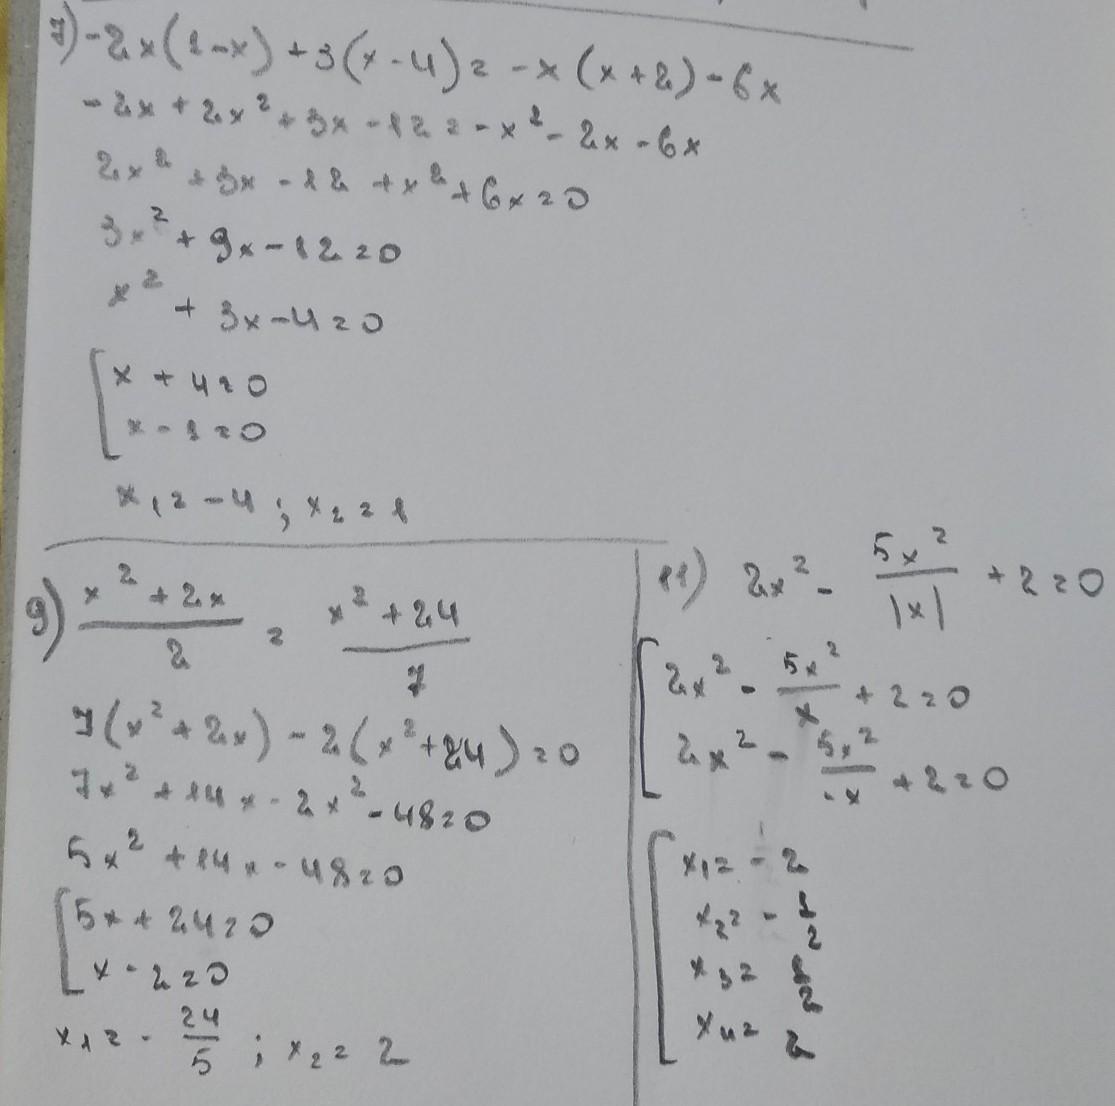 7) -2x(1-x)+3(x-4)=-x(x+2)-6x
-2x+2x²+3x-12=-x²-2x-6x
2x²+3x-12+x²+6x=0
3x²+9x-12=0
x²+3x-4=0
[x+4=0
x-1=0
x₁=-4; x₂=1
9) (x²+2x)/2 = (x²+24)/7
7(x²+2x)-2(x²+24)=0
7x²+14x-2x²-48=0
5x²+14x-48=0
[5x+24=0
x-2=0
x₁=-24/5; x₂=2
11) 2x²-5x²/|x|+2=0
[2x²-5x²/x+2=0
2x²-5x²/-x+2=0
[x₁=-2
x₂=-1/2
x₃=1/2
x₄=2